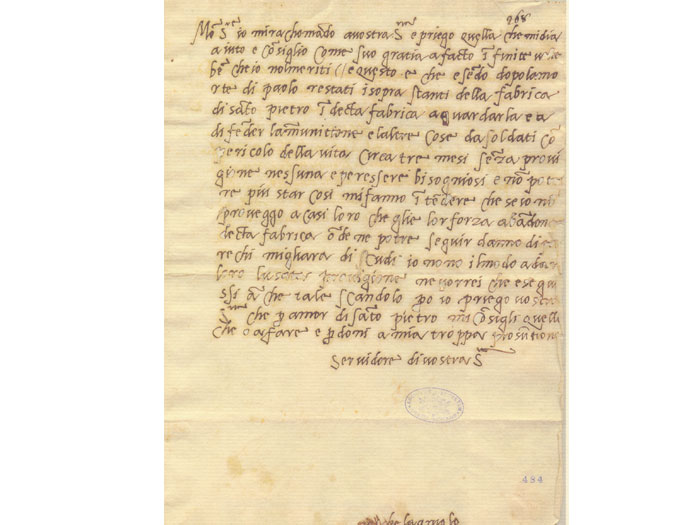 268
Mo͞ S͞re io mi rachomādo a vostra S͞ria e priego quella che mi dia
aiuto e cōsiglio come suo gratia a facto īfinite
bē che io nol meriti // e questo e che esēdo dopo la mo
rte di paolo restati i sopra stanti della fabrica
di sāto pietro ī decta fabrica a guardarla e a
difēder la munitione e laltre cose da soldati cō
pericolo della vita circa tre mesi sēza provi
gione nessuna e per essere bisogniosi e nō pote
re piu star cosi mi fanno ītēdere che se io nō
proveggo a casi loro che gli e lor forza abādona
decta fabrica ōde ne potre seguir danno di
rechi migliara di scudi io nō no il modo a dar
loro ne vorrei che seguі
ssi āche tale scandolo po io priego vostra
S͞ria che p amor di sāto pietro mi cōsigli quella
che o a fare e p doni a mia troppa prosūtione
servidore di vostra S͞ria
434